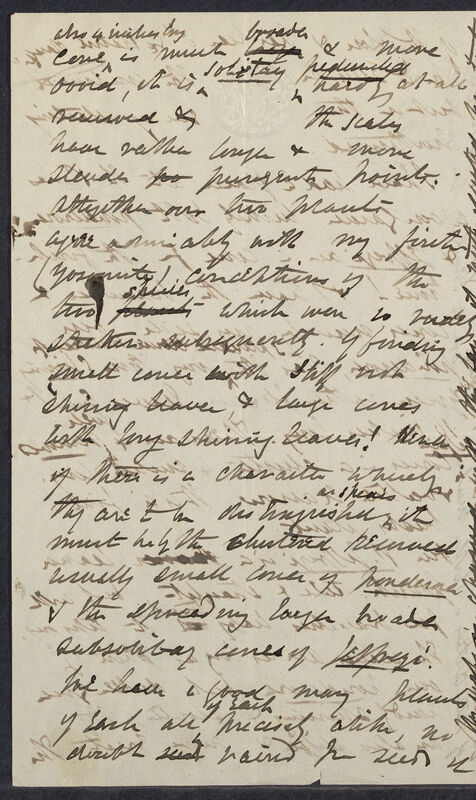 also 4 inches by broader
cone, is much larger & more
ovoid, it is solitary peduncled hardly at all
recurved & the scales
have rather longer & more
slender pungent points.
Altogether our two plants
agree admirably with my first
(Yosemite) conceptions of the
two plants species which were so rudely
shaken subsequently by finding
small cones with stiff not
shining leaves, & large cones
with long shining leaves! Hence
if there is a character whereby
they are to be distinguished as species, it
must be by the clustered recurved
usually small cones of ponderosa
& the spreading larger broader
subsolitary cones of Jeffreyi.
We have a good many plants
of each all of each precisely alike, no
doubt seed raised from seeds of